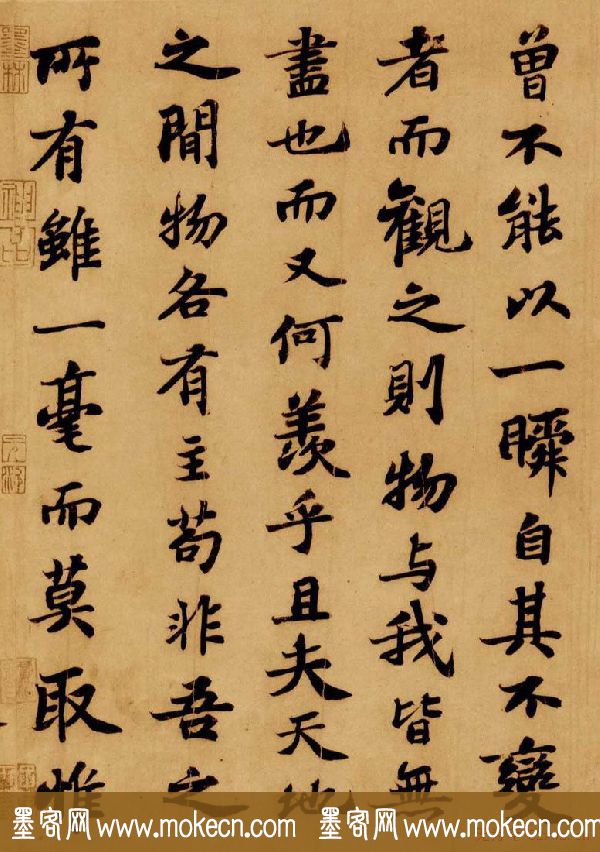 曾不能以一瞬自其不變
者而觀之則物与我皆無
盡也而又何羨乎且夫天地
之間物各有主苟非吾之
所有雖一毫而莫取惟
墨客网 www.mokecn.com 墨客网 www.mokecn.com